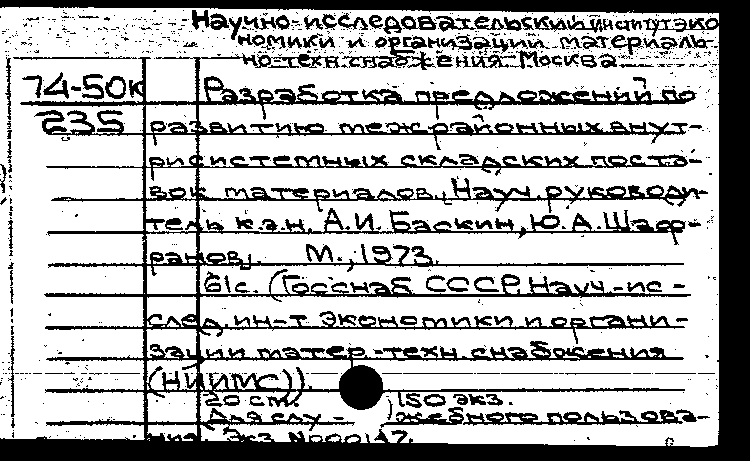 Научно-исследовательский институт эко
номики и организации материаль
но-техн. снабжения. Москва
74-50к
235
Разработка предложений по
развитию межрайонных внут-
рисистемных складских поста-
вок материалов. Науч. руководи-
тель к.э.н. А.И. Баскин, Ю.А. Шаф-
ранов. М., 1973.
61с. (Госснаб СССР. Науч.-ис-
след. ин-т экономики и органи-
зации матер.-техн. снабжения
(НИИМС)).
20 см. 150 экз.
Для слу-жебного пользова-
ния. Экз. №000147.